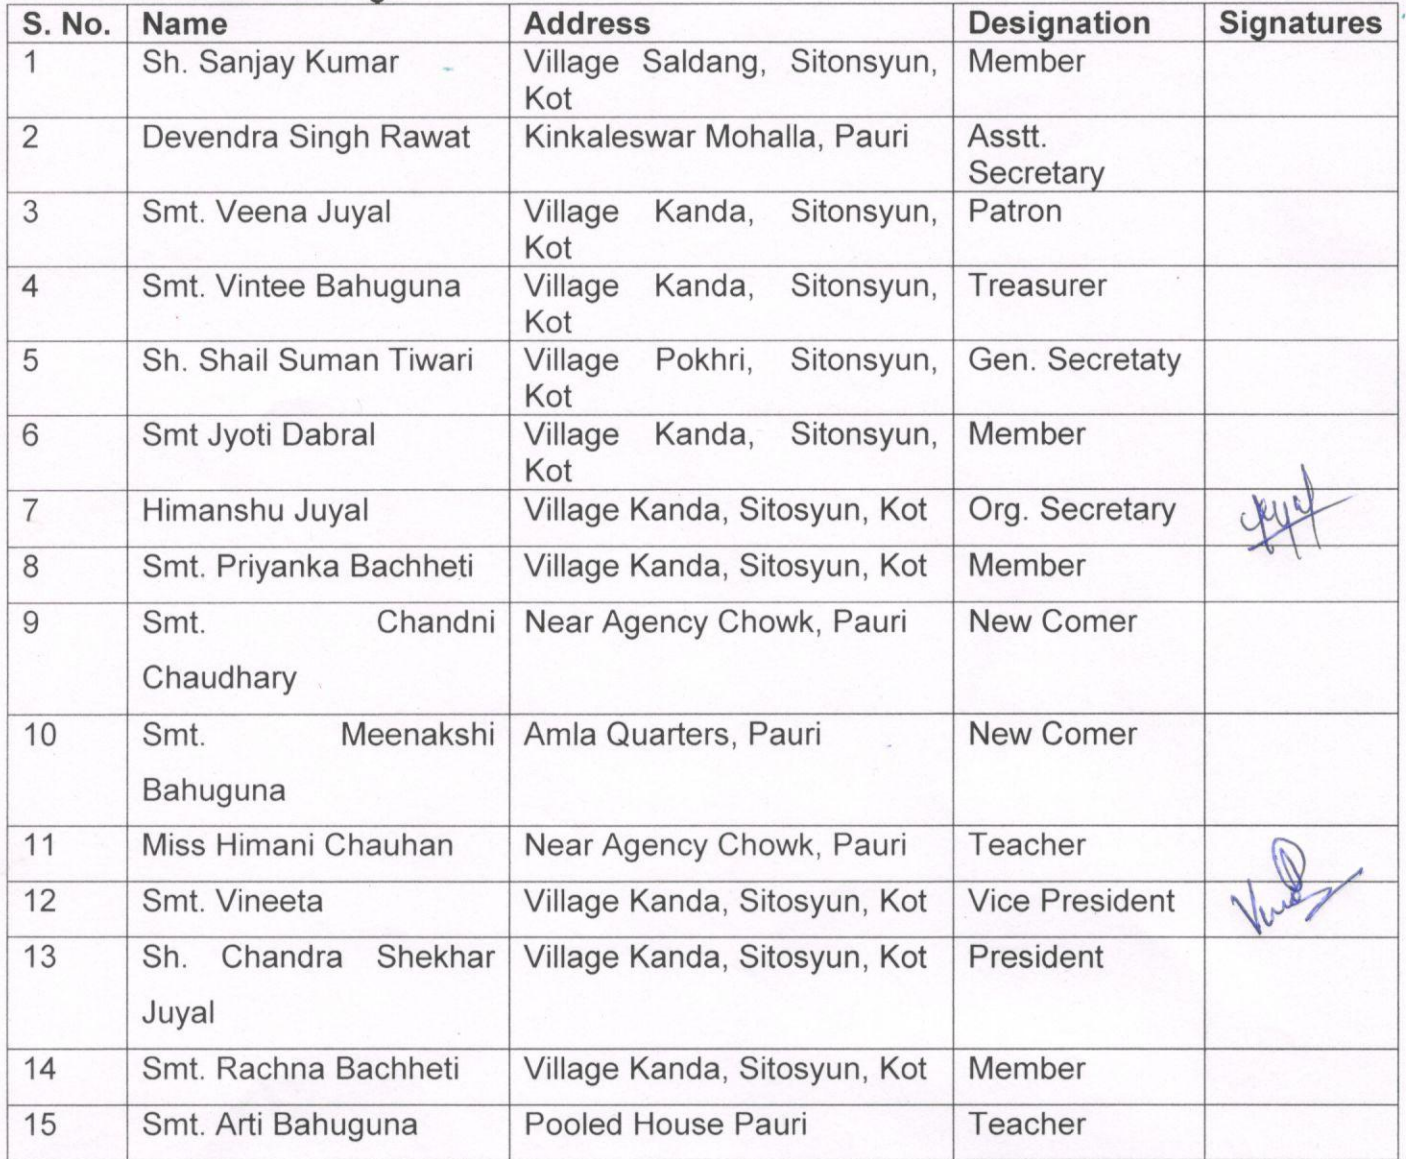 S. No. Name Address Designation Signatures
1 Sh. Sanjay Kumar Village Saldang, Sitonsyun, Member
Kot
2 Devendra Singh Rawat Kinkaleswar Mohalla, Pauri Asstt.
Secretary
3 Smt. Veena Juyal Village Kanda, Sitonsyun, Patron
Kot
4 Smt. Vintee Bahuguna Village Kanda, Sitonsyun, Treasurer
Kot
5 Sh. Shail Suman Tiwari Village Pokhri, Sitonsyun, Gen. Secretaty
Kot
6 Smt Jyoti Dabral Village Kanda, Sitonsyun, Member
Kot
7 Himanshu Juyal Village Kanda, Sitosyun, Kot Org. Secretary
8 Smt. Priyanka Bachheti Village Kanda, Sitosyun, Kot Member
9 Smt. Chandni Near Agency Chowk, Pauri New Comer
Chaudhary
10 Smt. Meenakshi Amla Quarters, Pauri New Comer
Bahuguna
11 Miss Himani Chauhan Near Agency Chowk, Pauri Teacher
12 Smt. Vineeta Village Kanda, Sitosyun, Kot Vice President
13 Sh. Chandra Shekhar Village Kanda, Sitosyun, Kot President
Juyal
14 Smt. Rachna Bachheti Village Kanda, Sitosyun, Kot Member
15 Smt. Arti Bahuguna Pooled House Pauri Teacher